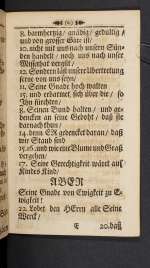 (6)
8. barmhertzig / gnädig / gedultig /
und von grosser Güte ist/
10. nicht mit uns nach unsern Sün-
den handelt / noch uns nach unser
Missethat vergilt /
12. Sondern läst unsere Ubertrettung
ferne von uns seyn /
11. Seine Gnade hoch walten
15. und erbarmet sich über die / so
Ihn fürchten /
8. Seinen Bund halten / und ge-
dencken an seine Gebott / daß sie
darnach thun /
14. denn ER gedencket daran / daß
wir Staub sind
15. 16. und wie eine Blume und Graß
vergehen /
17. Seine Gerechtigkeit wäret auf
Kindes Kind /
ABER
Seine Gnade von Ewigkeit zu E-
wigkeit!
22. Lobet den HErrn alle Seine
Werck /
E 20. daß